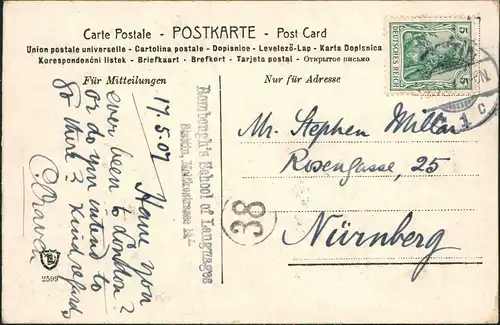 Carte Postale - POSTKARTE - Post Card
Union postale universelle - Cartolina postale - Dopisnice - Levelező-Lap - Karta Dopisnica
Korespondenóni listek - Briefkaart - Brefkort - Tarjeta postal - Открытое письмо
Für Mitteilungen
Nur für Adresse
5 DEUTSCHES REICH 5
1 C
17.5.07
Have you
ever been to London?
or do you intend to
go there? Kind regards,
School of Languages
38
Mr. Stephen Millar
Rosengasse, 25
Nürnberg
2599